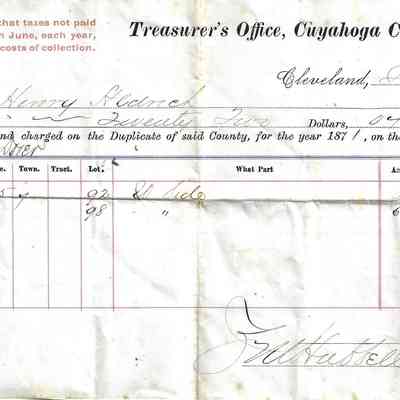 that taxes not paid
n June, each year,
costs of collection.
Treasurer's Office, Cuyahoga C
Cleveland,
Henry Aldrich
Twenty Two Dollars,
nd charged on the Duplicate of said County, for the year 1871, on th
Dover
e. Town. Tract. Lot. What Part
5 7 92 W Side
98 "